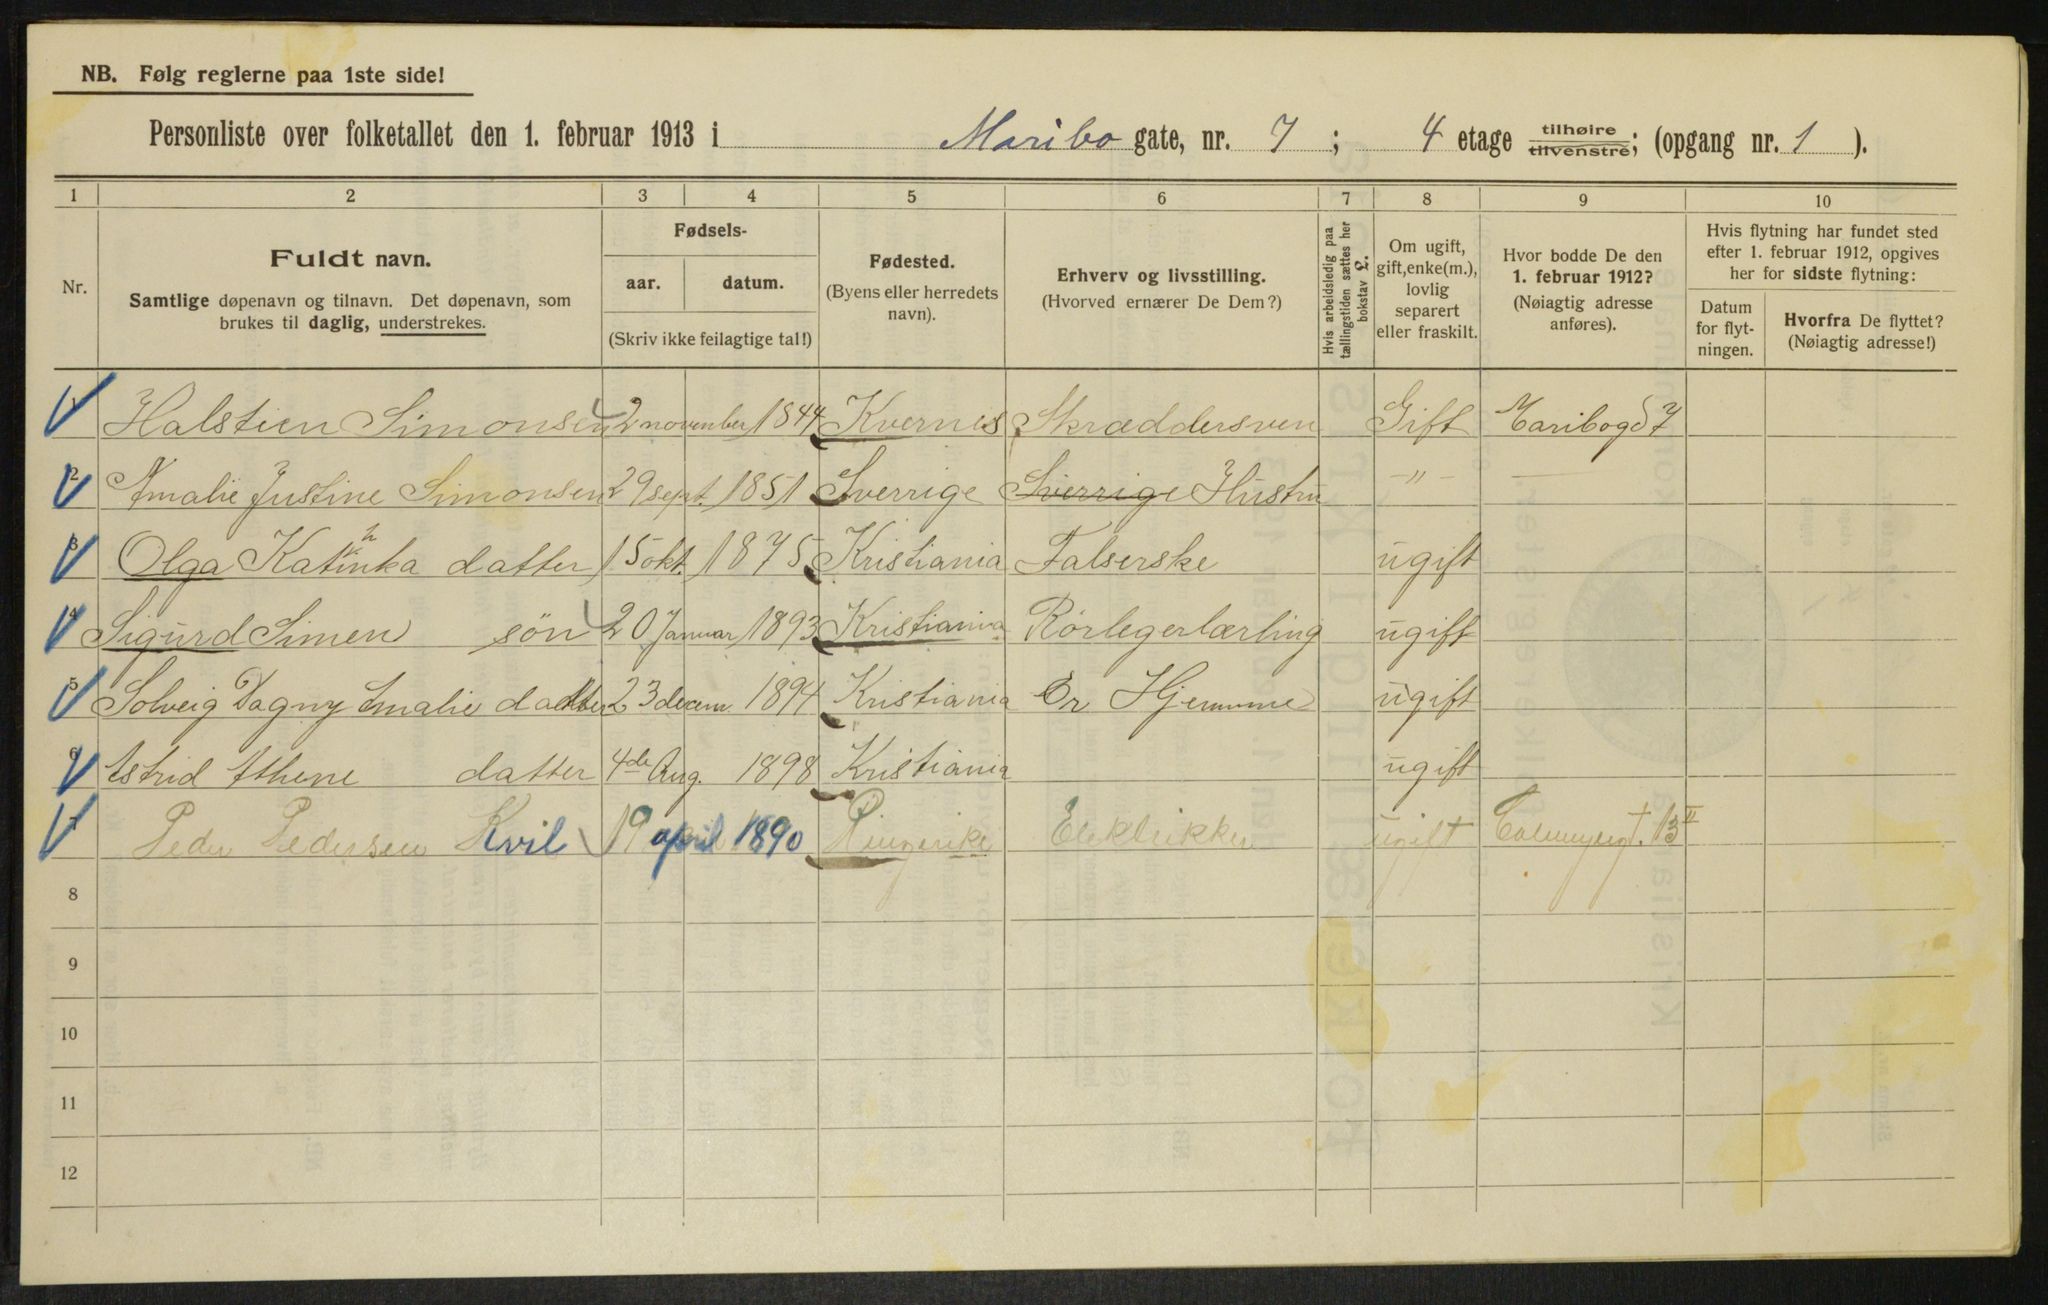 NB. Følg reglerne paa 1ste side!
Personliste over folketallet den 1. februar 1913 i Maribo gate, nr. 7 ; 4 etage tilhøire tilvenstre; (opgang nr. 1 ).
1 2 3 4 5 6 7 8 9 10
Nr.
Fuldt navn.
Samtlige døpenavn og tilnavn. Det døpenavn, som
brukes til daglig, understrekes.
Fødsels-
aar. datum.
(Skriv ikke feilagtige tal!)
Fødested.
(Byens eller herredets
navn).
Erhverv og livsstilling.
(Hvorved ernærer De Dem?)
Hvis arbeidsledig paa
tællingstiden sættes her
bokstav L.
Om ugift,
gift, enke(m.),
lovlig
separert
eller fraskilt.
Hvor bodde De den
1. februar 1912?
(Nøiagtig adresse
anføres).
Hvis flytning har fundet sted
efter 1. februar 1912, opgives
her for sidste flytning:
Datum
for flyt-
ningen.
Hvorfra De flyttet?
(Nøiagtig adresse!)
1 Halstien Simonsen 2 november 1844 Kvernes Skræddersven Gift Maribogd 7
2 Amalie Justine Simonsen 29 sept. 1851 Sverrige Sverrige Hustru -"-
3 Olga Katinka datter 15 okt. 1875 Kristiania Falserske ugift
4 Sigurd Simen søn 20 Januar 1893 Kristiania Rørlegerlærling ugift
5 Solveig Dagny Amalie datter 23 decem 1894 Kristiania Er Hjemme ugift
6 Astrid Athene datter 4de Aug. 1898 Kristiania ugift
7 Peder Pedersen Kvil 19 april 1890 Ringerike Elektrikker ugift 13 II
8
9
10
11
12